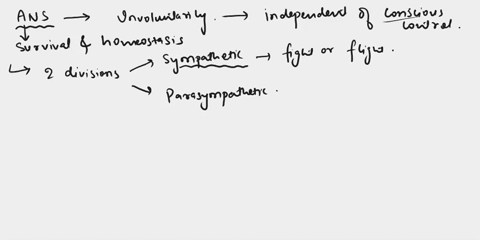 ANS → Involuntarily. → independent of conscious control.
Survival & homeostasis
2 divisions → Sympathetic → fight or flight.
→ Parasympathetic.